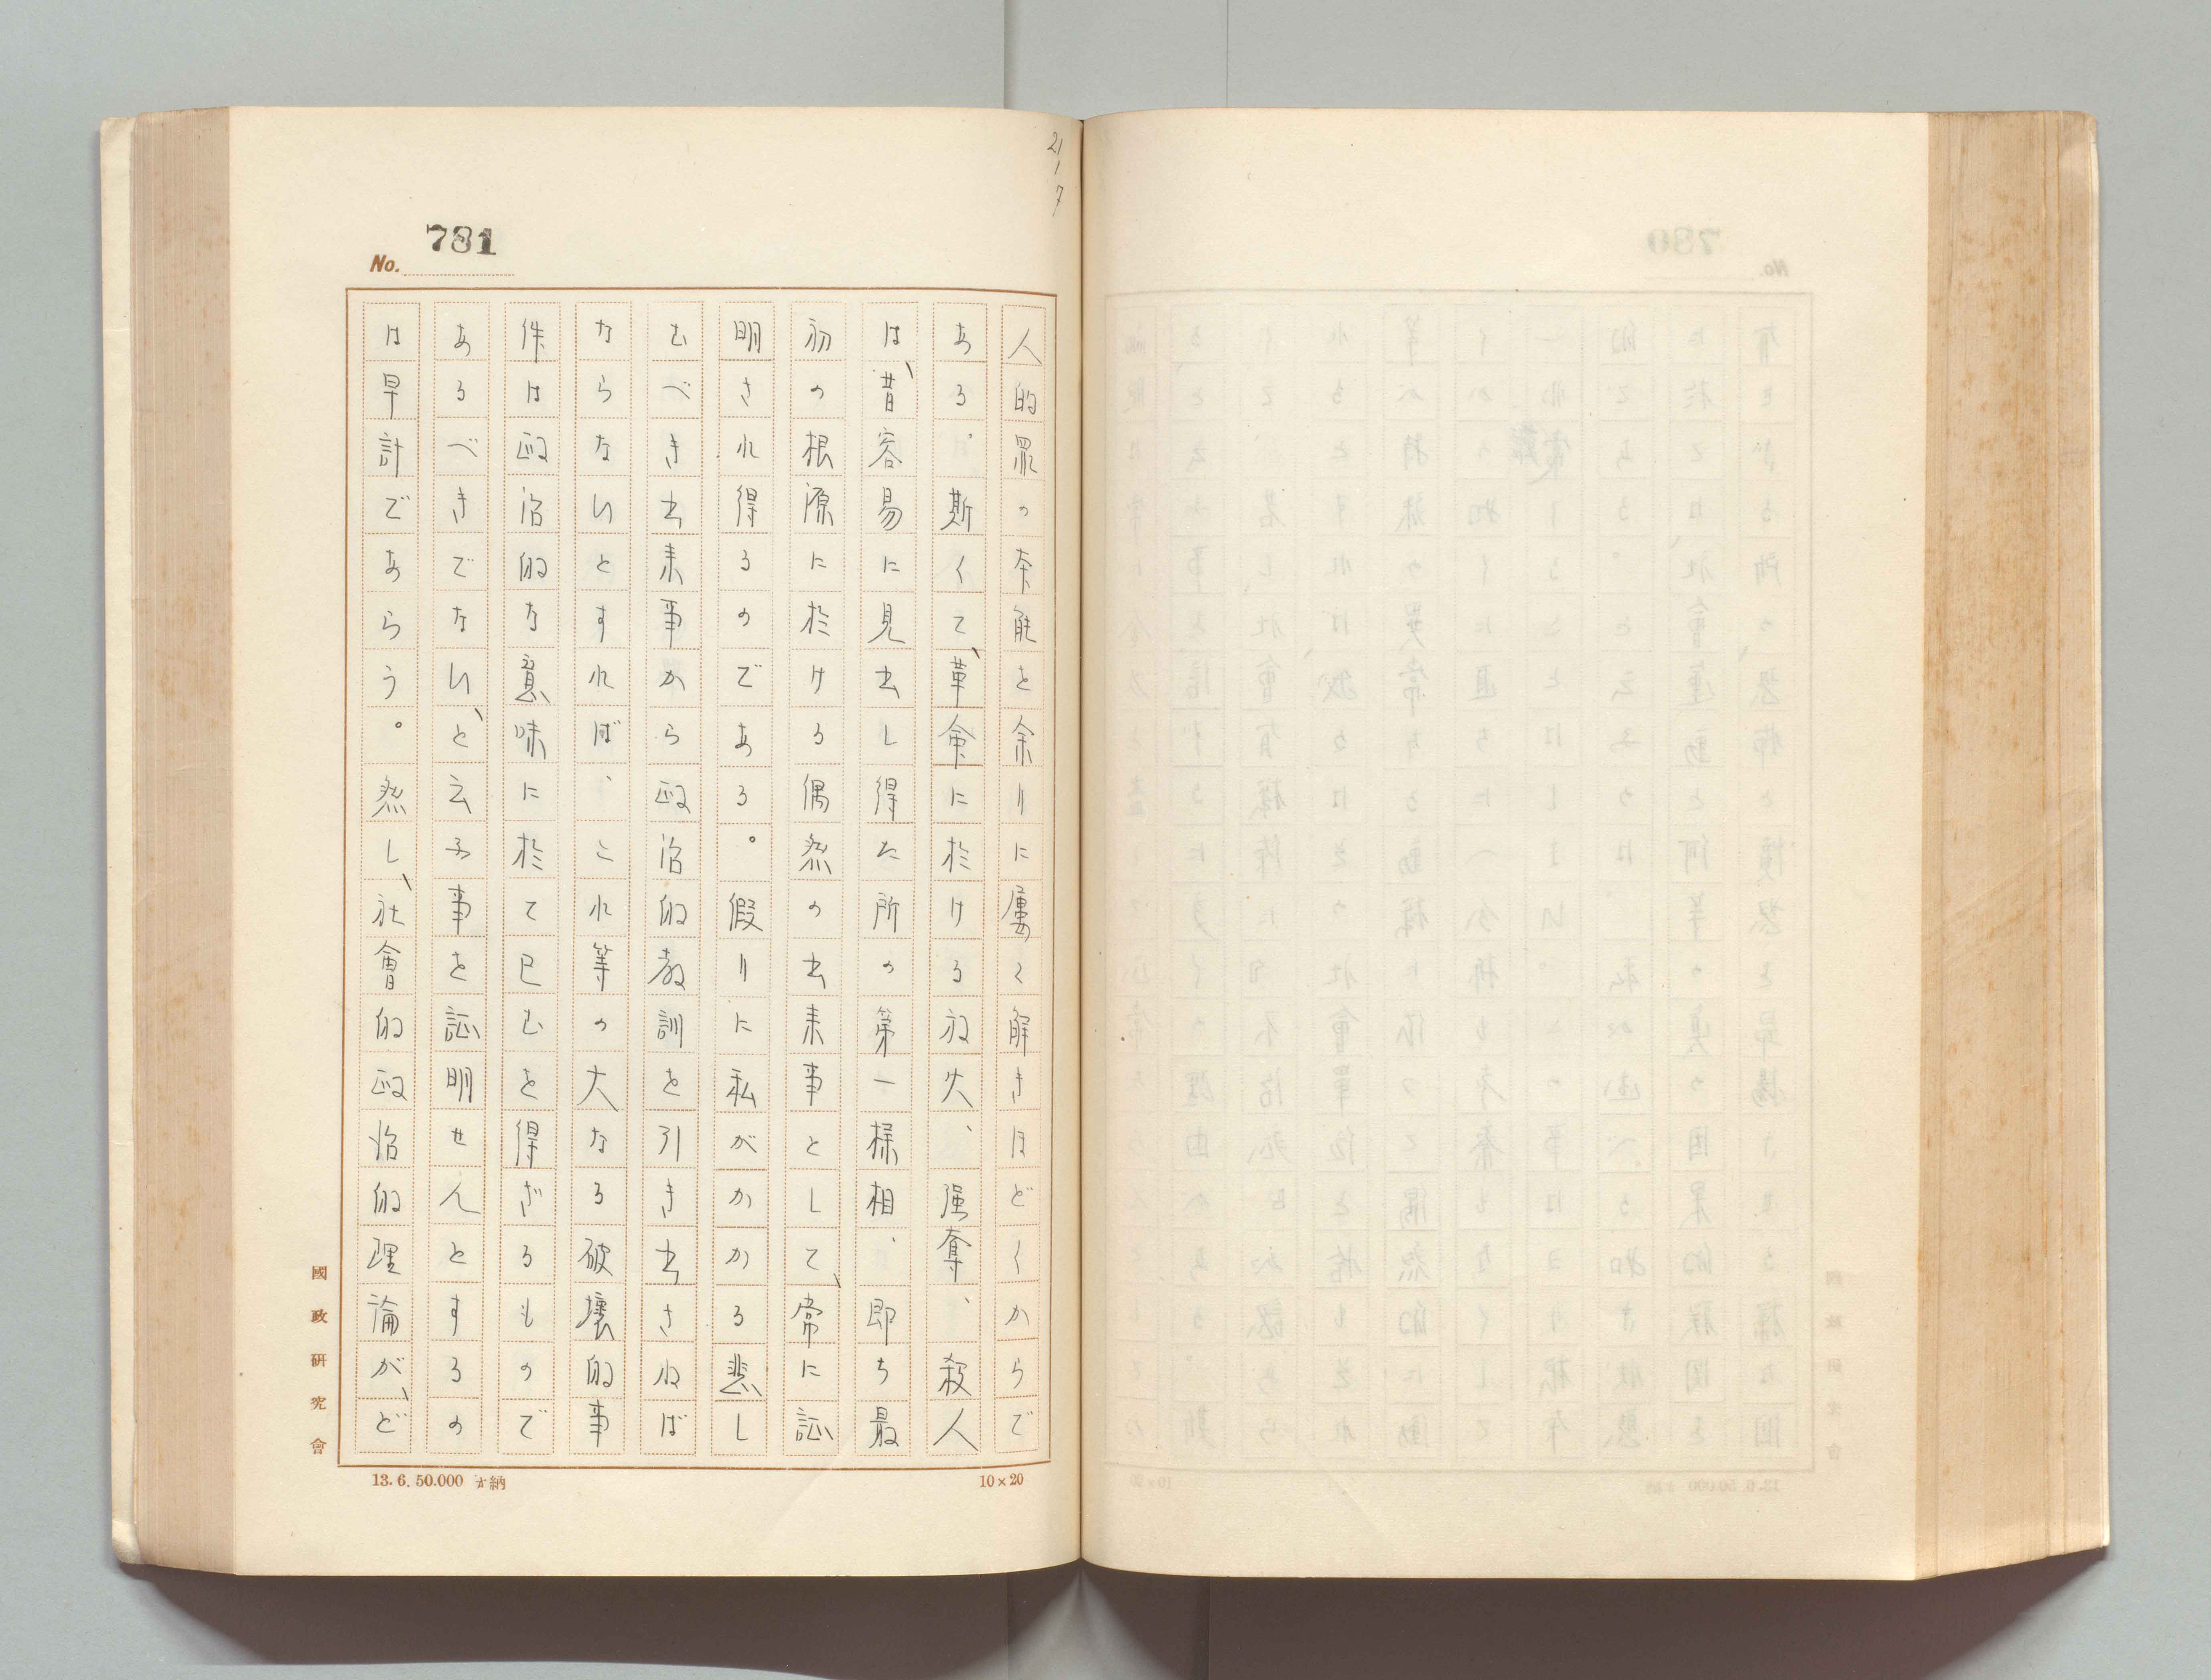 21/7
No. 781
人的罪の本能を余りに屢々解きほどくからで
ある、斯くて、革命に於ける放火、强奪、殺人
は、昔容易に見出し得た所の第一様相、即ち最
初の根源に於ける偶然の出来事として、常に証
明され得るのである。假りに私がかかる悲し
むべき出来事から政治的教訓を引き出さねば
ならないとすれば、これ等の大なる破壊的事
件は政治的な意味に於て已むを得ざるもので
あるべきでない、と云ふ事を証明せんとするの
は早計であらう。然し、社會的政治的理論が、ど
國政研究會
13.6.50.000 納
10×20